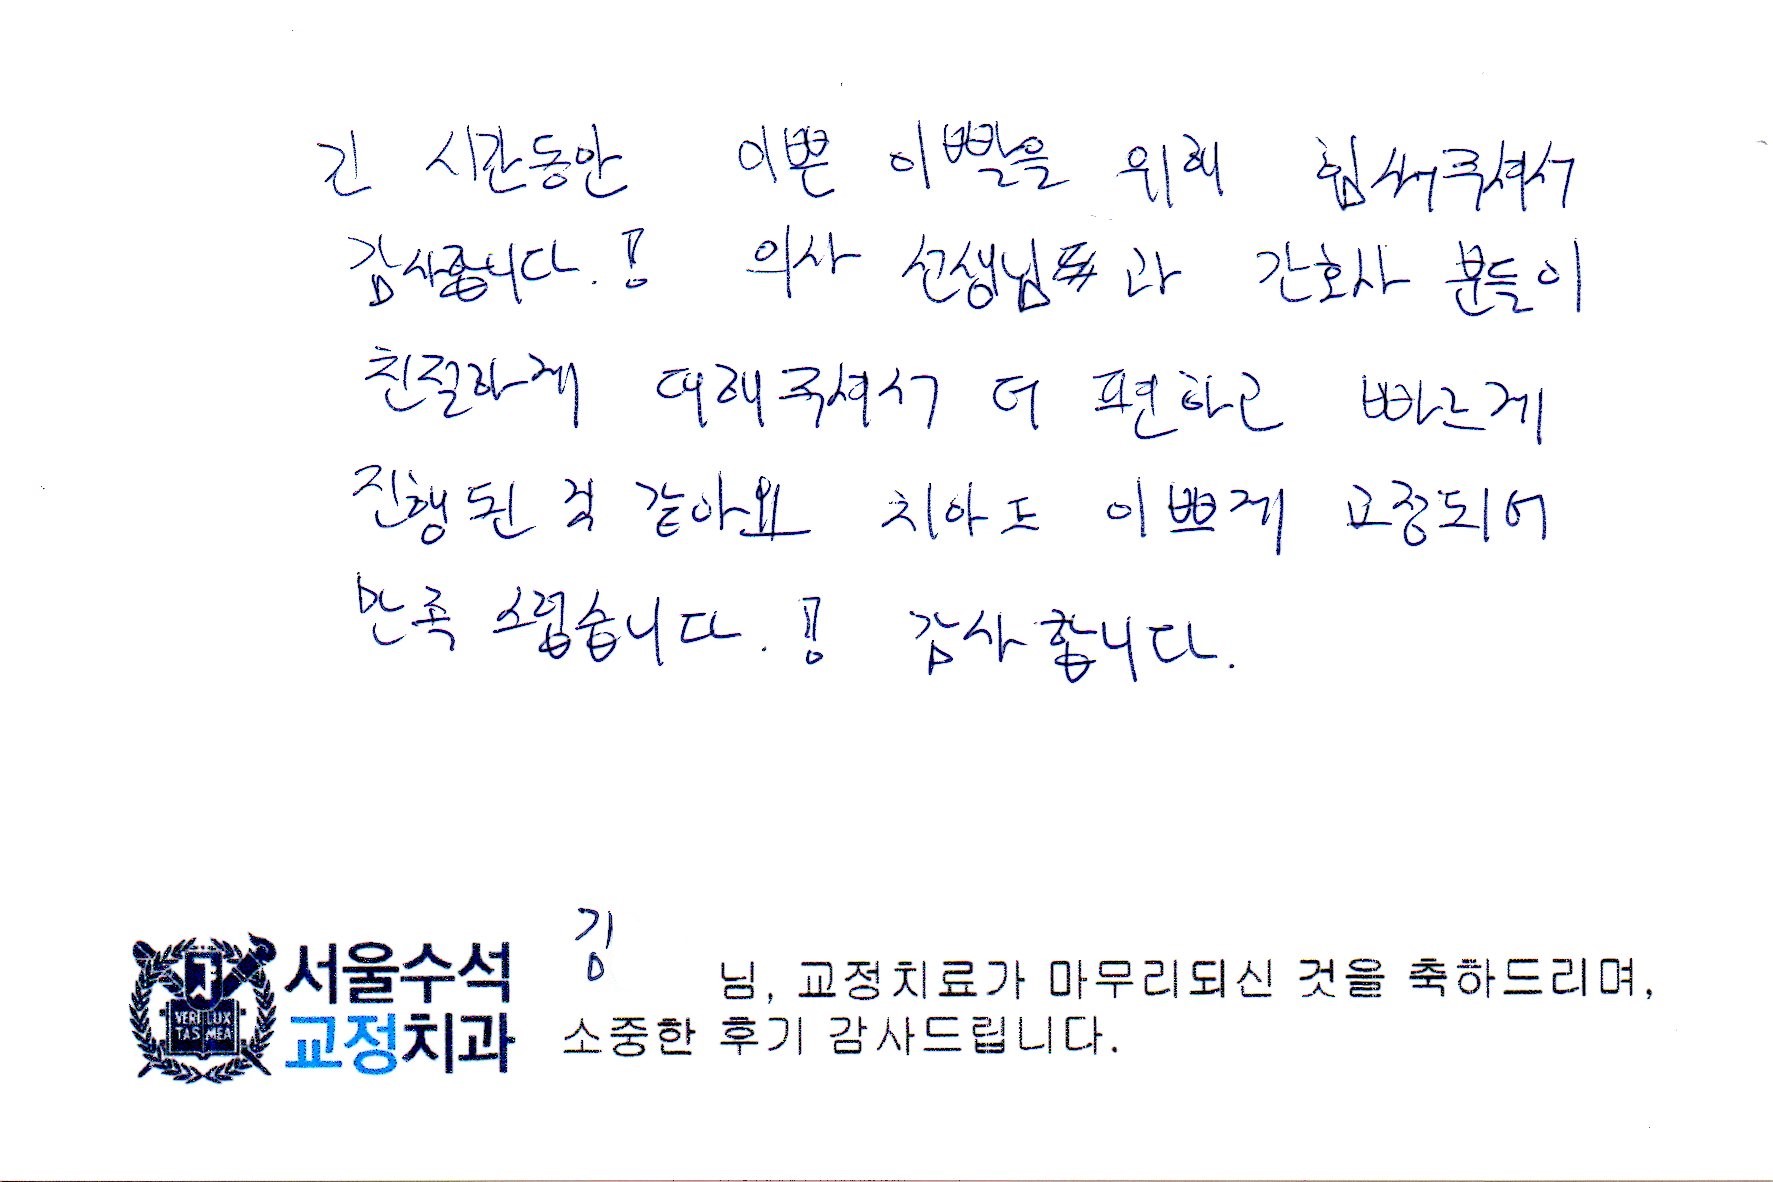 긴 시간동안 이쁜 이빨을 위해 힘써주셔서
감사합니다.! 의사 선생님과 간호사 분들이
친절하게 대해주셔서 더 편하고 빠르게
진행된 것 같아요 치아도 이쁘게 교정되어
만족스럽습니다.! 감사합니다.
김
님, 교정치료가 마무리되신 것을 축하드리며,
소중한 후기 감사드립니다.
서울수석
교정치과
VERI LUX
TAS MEA